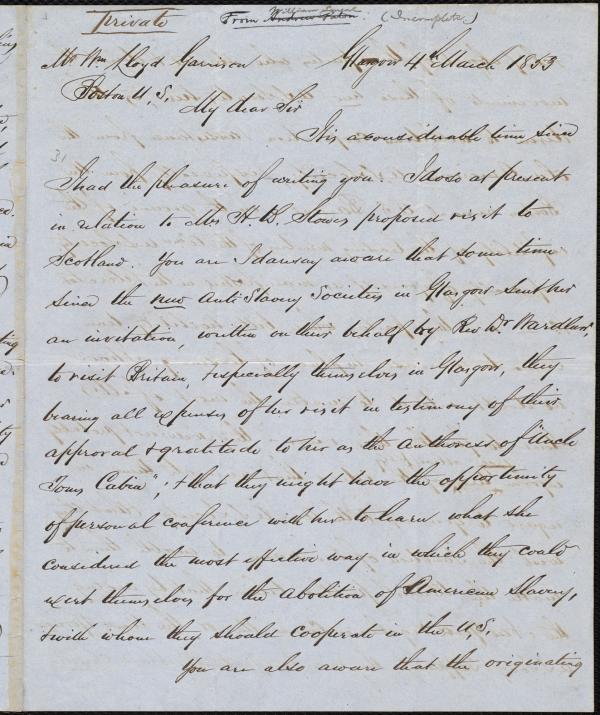 Private
William Smeal
From Andrew Paton. (Incomplete.)
Mr Wm Lloyd Garrison Glasgow 4th March 1853
Boston U.S.
My dear Sir
31
It is a considerable time since
I had the pleasure of writing you. I do so at present
in relation to Mrs H. B. Stowes proposed visit to
Scotland. You are I daresay aware that some time
since the new Anti Slavery Societies in Glasgow sent her
an invitation, written on their behalf by Rev Dr Wardlaw,
to visit Britain, & especially themselves in Glasgow, they
bearing all expenses of her visit in testimony of their
approval & gratitude to her as the authoress of "Uncle
Toms Cabin", & that they might have the opportunity
of personal conference with her to learn what she
considered the most effective way in which they could
exert themselves for the Abolition of American Slavery,
& with whom they should cooperate in the U.S.
You are also aware that the originating